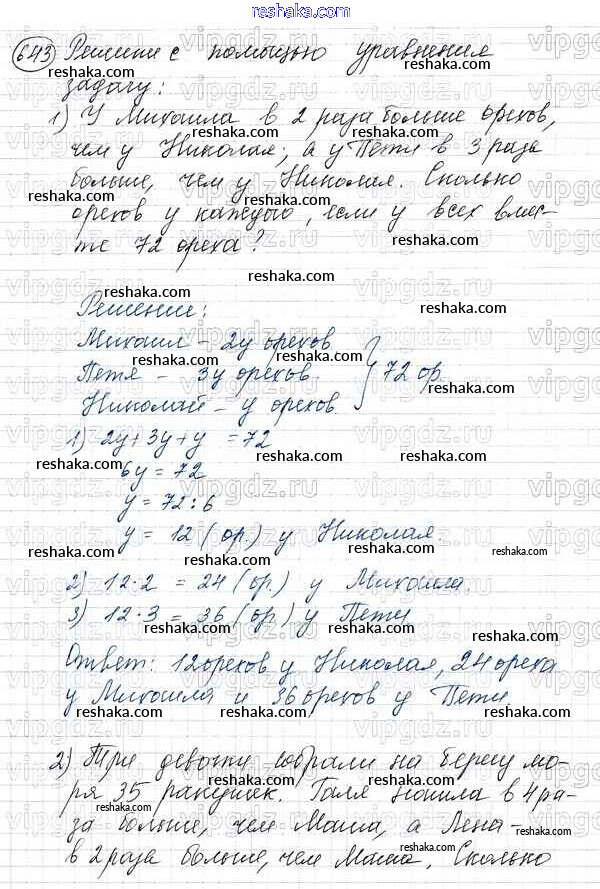 reshaka.com
643 Решите с помощью уравнения
задачу:
1) У Михаила в 2 раза больше орехов,
чем у Николая, а у Пети в 3 раза
больше, чем у Николая. Сколько
орехов у каждого, если у всех вмес-
те 72 ореха?
Решение:
Михаил – 2y орехов
Петя – 3y орехов
Николай – y орехов
72 ор.
1) 2y+3y+y = 72
6y = 72
y = 72:6
y = 12 (ор.) у Николая.
2) 12·2 = 24 (ор.) у Михаила.
3) 12·3 = 36 (ор.) у Пети
Ответ: 12 орехов у Николая, 24 ореха
у Михаила и 36 орехов у Пети.
2) Три девочки собрали на берегу мо-
ря 35 ракушек. Галя нашла в 4 ра-
за больше, чем Маша, а Лена –
в 2 раза больше, чем Маша. Сколько